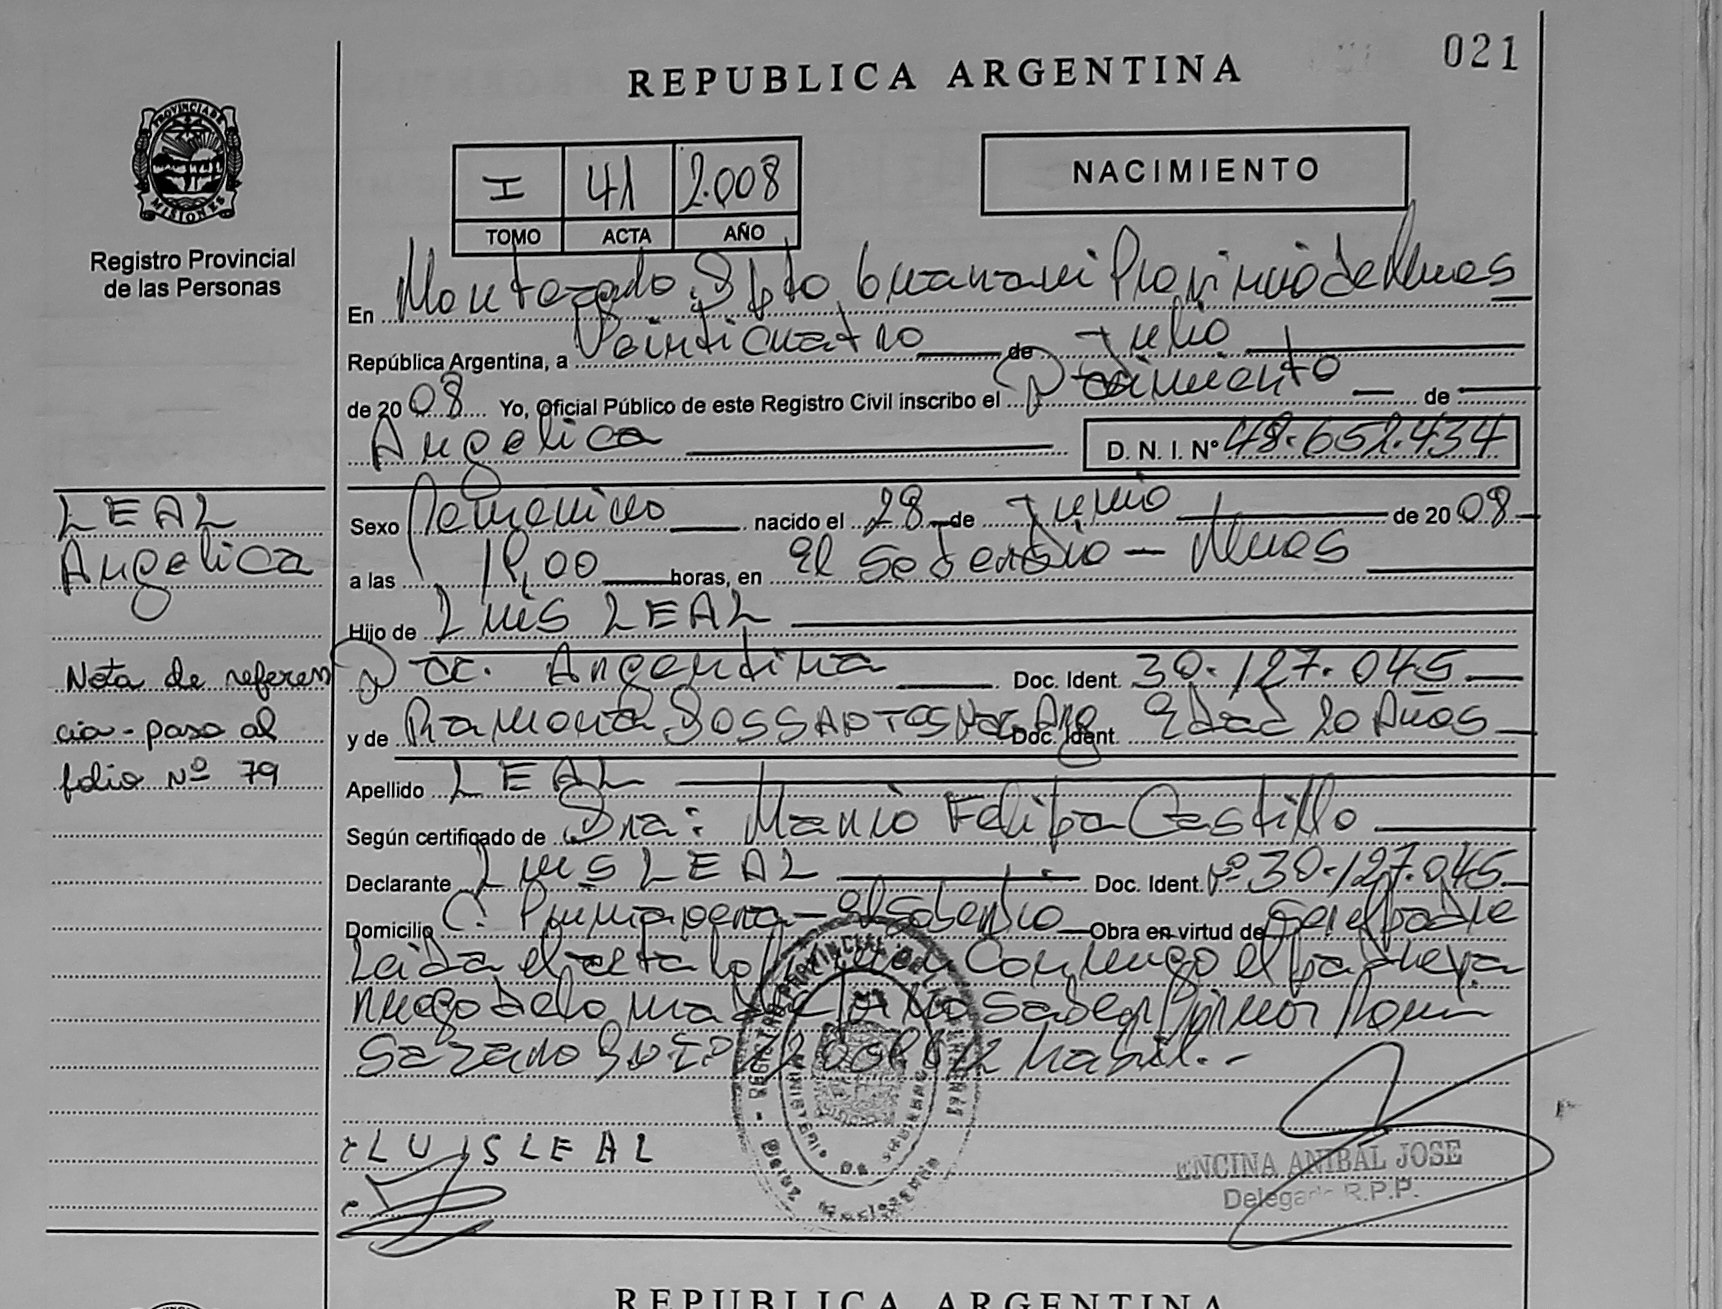 021
REPUBLICA ARGENTINA
PROVINCIA DE
MISIONES
Registro Provincial
de las Personas
I 41 2.008
TOMO ACTA AÑO
NACIMIENTO
En Dpto, Guarani Provincia de Mnes
República Argentina, a Veinticuatro de Julio
de 2008 Yo, Oficial Público de este Registro Civil inscribo el Nacimiento de
Angelica D. N. I. Nº 48.652.434
LEAL
Angelica
Nota de referen
cia - paso al
folio Nº 79
Sexo Femenino nacido el 28 de Junio de 2008
a las 19,00 horas, en El Soberbio - Mnes
Hijo de Luis LEAL
Nac. Argentina Doc. Ident. 30.127.045
y de Ramona Nac. Arg Doc. Ident. Edad 20 Años
Apellido LEAL
Según certificado de Dra: Felipa Castillo
Declarante Luis LEAL Doc. Ident. Nº 30.127.045
Domicilio C. Primavera - El Soberbio Obra en virtud de Ser el padre
Leida el acta la el padre y a
ruego de la madre por no saber firmar
habil.-
LUIS LEAL
ENCINA ANIBAL JOSE
Delegado R.P.P.
REPUBLICA ARGENTINA